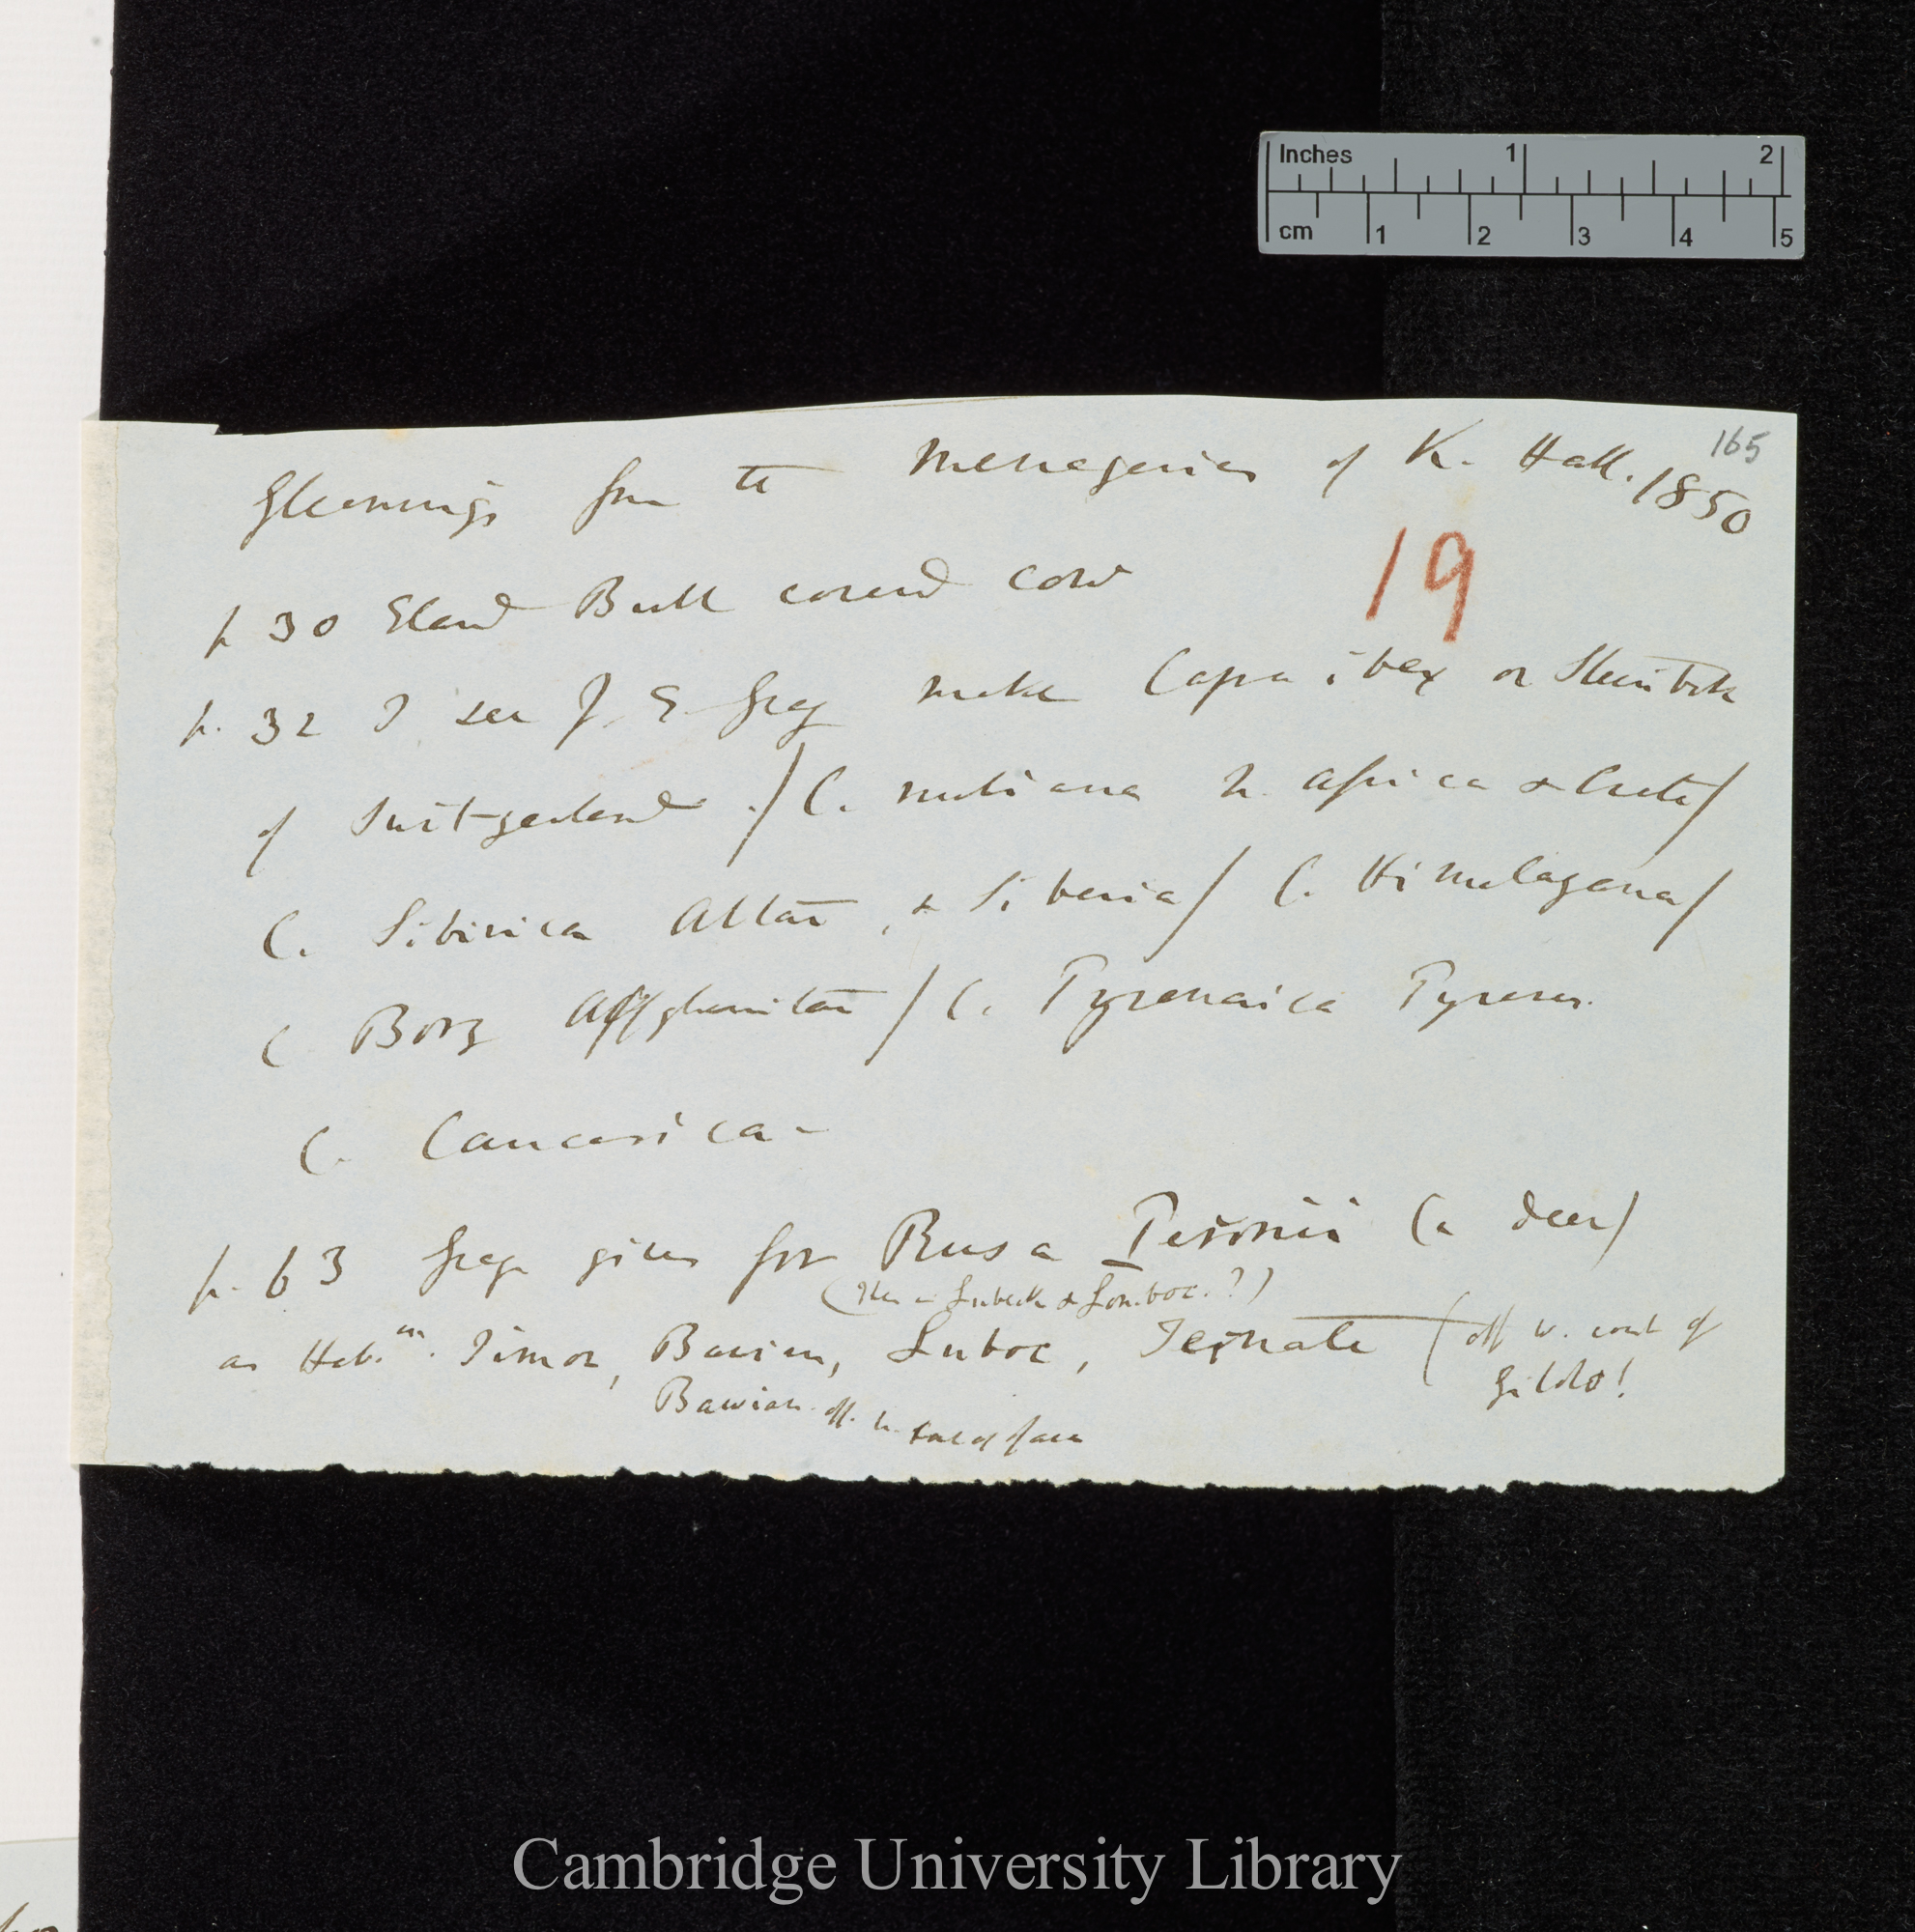 Inches 1 2
cm 1 2 3 4 5
165
Gleanings from the Menageries of K. Hall. 1850
19
p 30 Eland Bull covered cow
p. 32 I see J. E. Gray makes Capra ibex or Steinbok
of Switzerland ./ C. nubiana N. Africa & Crete/
C. Sibirica Altai, & Siberia/ C. Himalayana/
C Borz Affghanistan / C. Pyrenaica Pyrenees.
C. Caucasica –
p. 63 Gray gives for Rusa Peronii (a deer)
(Lubeck & Lomboc. ?)
as Hab.ⁿ. Timor, Bavian, Luboc, Ternate (off W. coast of
Gilolo!
Bawian off N. coast of Java
Cambridge University Library